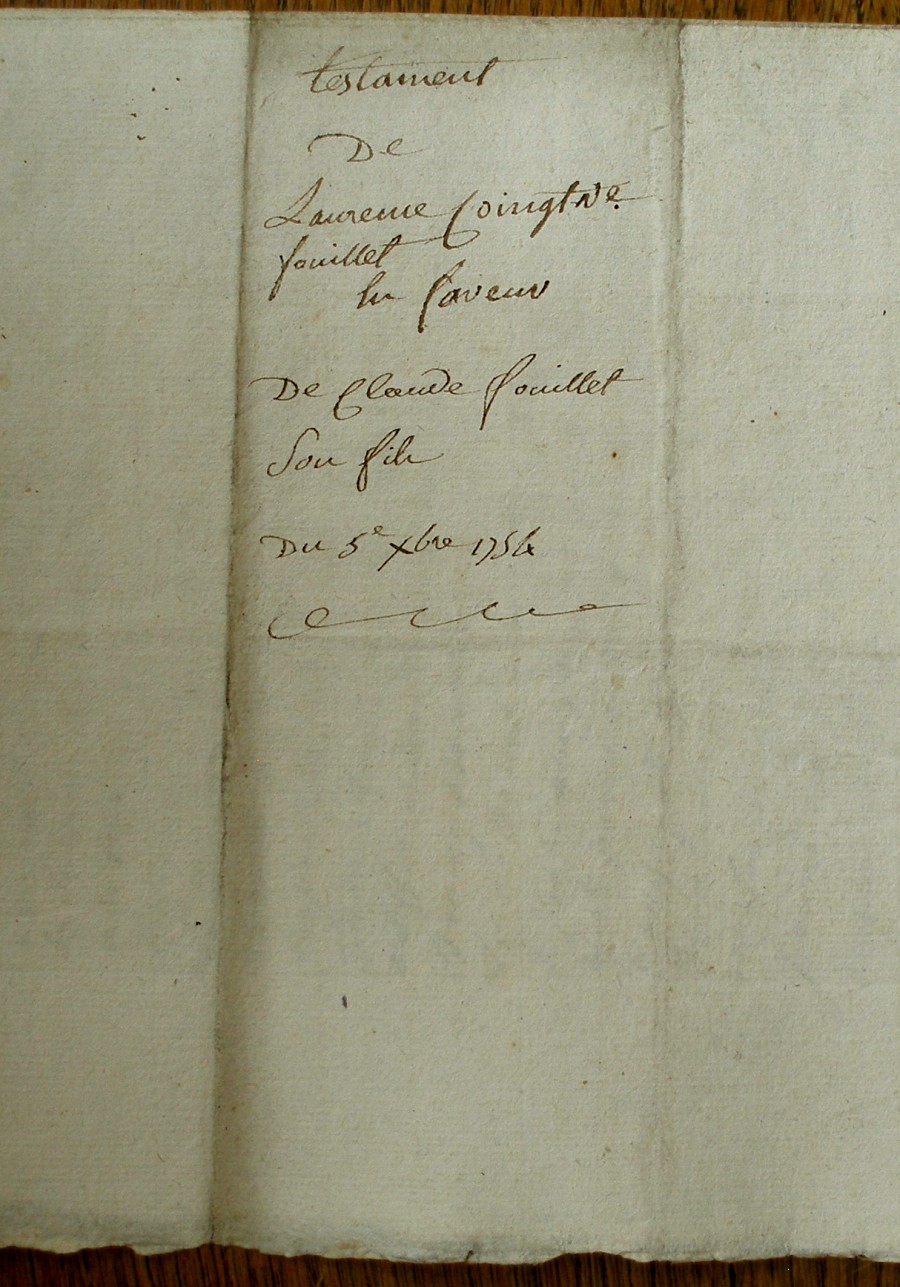 testament
De
Laurence Coingt Ve.
fouillet
En faveur
De Claude fouillet
Son fils
Du 5e xbre 1754